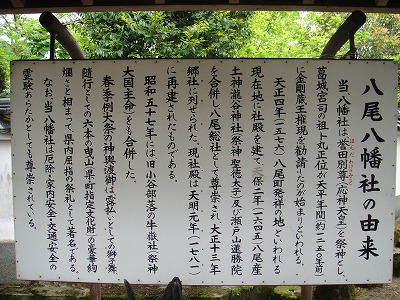 八尾八幡社の由来
当、八幡社は、誉田別尊(応神天皇)を祭神とし、
葛城宮司の祖十丸正位が天平年間(約一二五〇年前)
に金剛蔵王権現を勧請したのが始まりといわれる。
天正四年(一五七六)八尾町発祥の地といわれる
現在地に社殿を建て、天保二年(一六四五)八尾産
土神瀧谷神社(祭神聖徳太子)及び瀬戸山蓮勝院
を合併し、八尾総社として尊崇され、大正十三年
郷社に列せられた。現社殿は天明元年(一七八一)
に再建されたものである。
昭和五十七年には旧小谷部落の牛嶽社(祭神
大国主命)をも合併した。
春季例大祭の神輿渡御は露払いとしての獅子舞、
随行としての六本の曳山(県・町指定文化財)の豪華絢
爛さと相まって、県内屈指の祭礼として著名である。
なお、当八幡社は厄除・家内安全・交通安全の
霊験あらたかとしても尊崇されている。